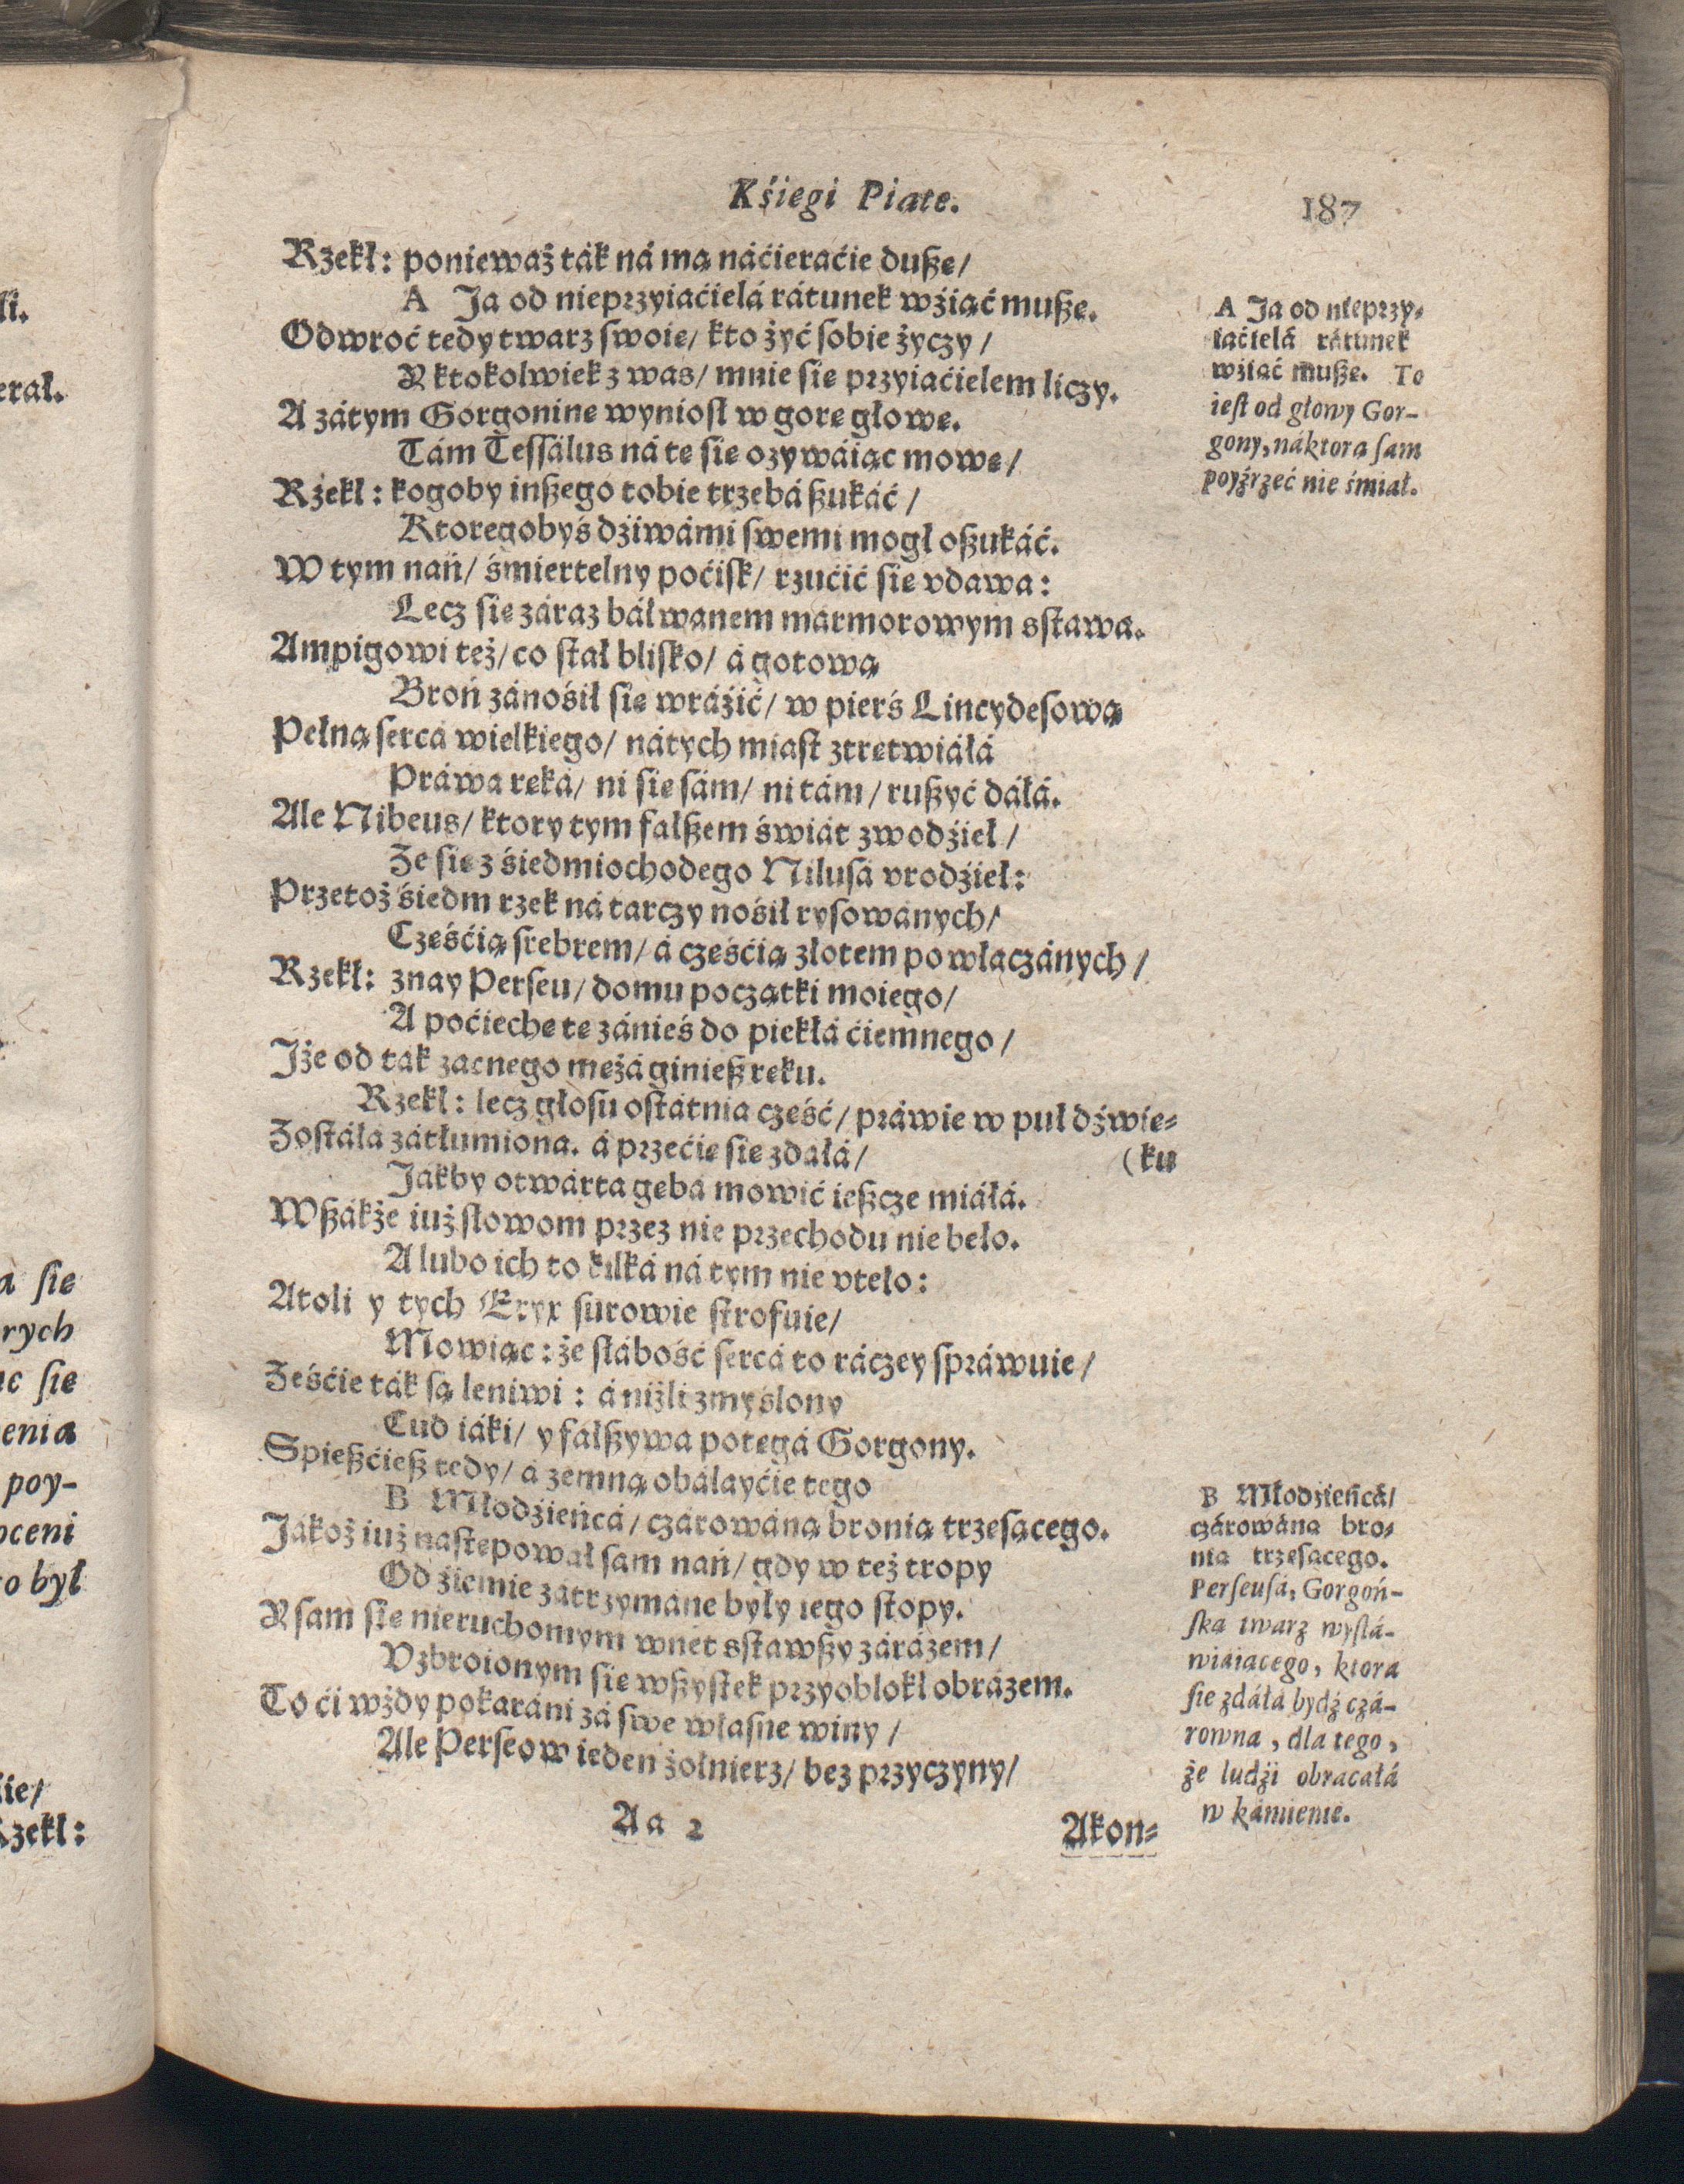 li.
erał.
a ſie
rych
ąc ſie
enia
poy-
oceni
to był
ſie/
Rzekł:
Kśięgi Piąte.
187
Rzekł: ponieważ ták ná mą náćieraćie dußę/
A Ja od nieprzyiaćielá rátunek wźiąć mußę.
Odwroć tedy twarz ſwoię/ kto żyć ſobie życzy/
A ktokolwiek z was/ mnie ſię przyiaćielem liczy.
A zátym Gorgoninę wyniosł w gorę głowę.
Tám Teſſálus ná tę ſię ozywáiąc mowę/
Rzekł: kogoby inßego tobie trzebá ßukáć/
Ktoregobyś dźiwámi ſwemi mogł oßukáć.
W tym nań/ śmiertelny poćiſk/ rzućić ſię vdawa:
Lecz ſię záraz báłwanem marmorowym sſtawa.
Ampigowi też/ co ſtał bliſko/ á gotową
Broń zánośił ſię wráźić/ w pierś Lincydeſową
Pełną ſercá wielkiego/ nátych miaſt ztrętwiáłá
Práwa ręká/ ni ſię ſám/ ni tám/ rußyć dáłá.
Ale Nibeus/ ktory tym fałßem świát zwodźieł/
Że ſię z śiedmiochodego Nilusá vrodźieł:
Przetoż śiedm rzek ná tarczy nośił ryſowánych/
Częśćią ſrebrem/ á częśćią złotem powłaczánych/
Rzekł: znay Perſeu/ domu początki moiego/
A poćiechę tę zánieś do piekłá ćiemnego/
Jże od ták zacnego mężá ginieß ręku.
Rzekł: lecz głoſu oſtátnia część/ práwie w puł dźwię-
Zoſtáłá zátłumiona. á przećię ſię zdáłá/ (ku
Jákby otwárta gębá mowić ießcze miáłá.
Wßákże iuż ſłowom przez nię przechodu nie beło.
A lubo ich to kilká ná tym nie vtęło:
Atoli y tych Eryx ſurowie ſtrofuie/
Mowiąc: że ſłábość ſercá to ráczey ſpráwuie/
Żeśćie ták ſą leniwi: á niżli zmyślony
Cud iáki/ y fałßywa potęgá Gorgony.
Spießćieß tedy/ á zemną obálayćie tego
B Młodźieńcá/ czárowáną bronią trzęſącego.
Jákoż iuż náſtępował ſam nań/ gdy w też tropy
Od źiemie zátrzymáne były iego ſtopy.
A ſam ſię nieruchomym wnet sſtawßy zárázem/
Vzbroionym ſię wßyſtek przyoblokł obrázem.
To ći wżdy pokaráni zá ſwe właſne winy/
Ale Perſeow ieden żołnierz/ bez przyczyny/
Aa 2
Akon-
A Ja od nieprzy-
iaćielá rátunek
wźiąć mußę. To
ieſt od głowy Gor-
gony, náktorą ſam
poyźrzeć nie śmiał.
B Młodźieńcá/
czárowáną bro-
nią trzęſącego.
Perſeuſá, Gorgoń-
ſką twarz wyſtá-
wiáiącego, ktora
ſię zdáłá bydź czá-
rowna, dla tego,
że ludźi obracałá
w kámienie.